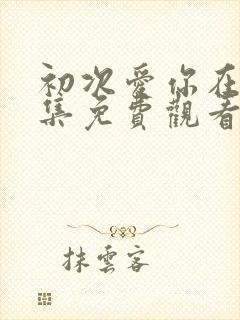 初次愛你在
集免費觀看
抹雲客